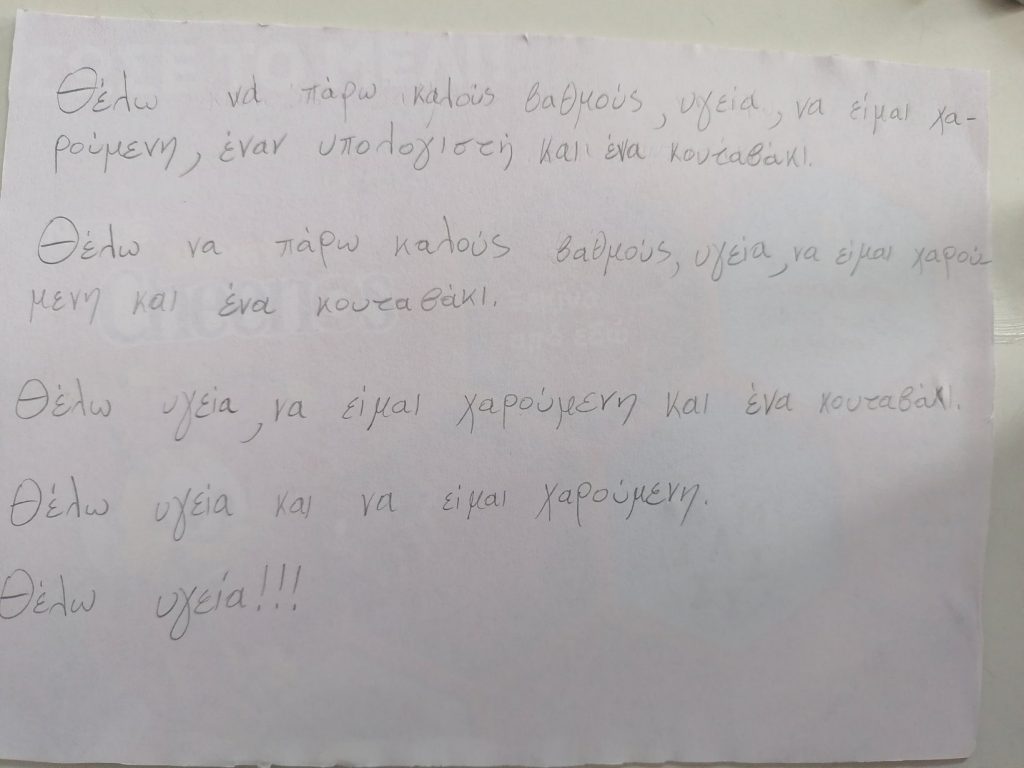 Θέλω να πάρω καλούς βαθμούς, υγεία, να είμαι χα-
ρούμενη, έναν υπολογιστή και ένα κουταβάκι.
Θέλω να πάρω καλούς βαθμούς, υγεία, να είμαι χαρού
μενη και ένα κουταβάκι.
Θέλω υγεία, να είμαι χαρούμενη και ένα κουταβάκι.
Θέλω υγεία και να είμαι χαρούμενη.
Θέλω υγεία!!!